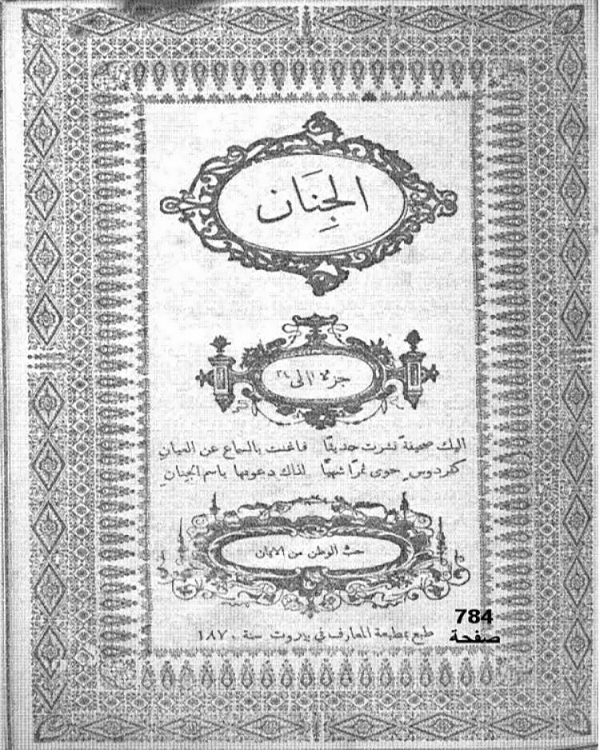 الجِنَان
جزء ١ الى ٢٤
اليك صحيفة نشرت حديثا فاغنت بالسماع عن العيان
كفردوسٍ حوى ثمرًا شهيًا لذاك دعوتها باسم الجنانِ
حب الوطن من الايمان
784
صفحة
طبع بمطبعة المعارف في بيروت سنة ١٨٧٠